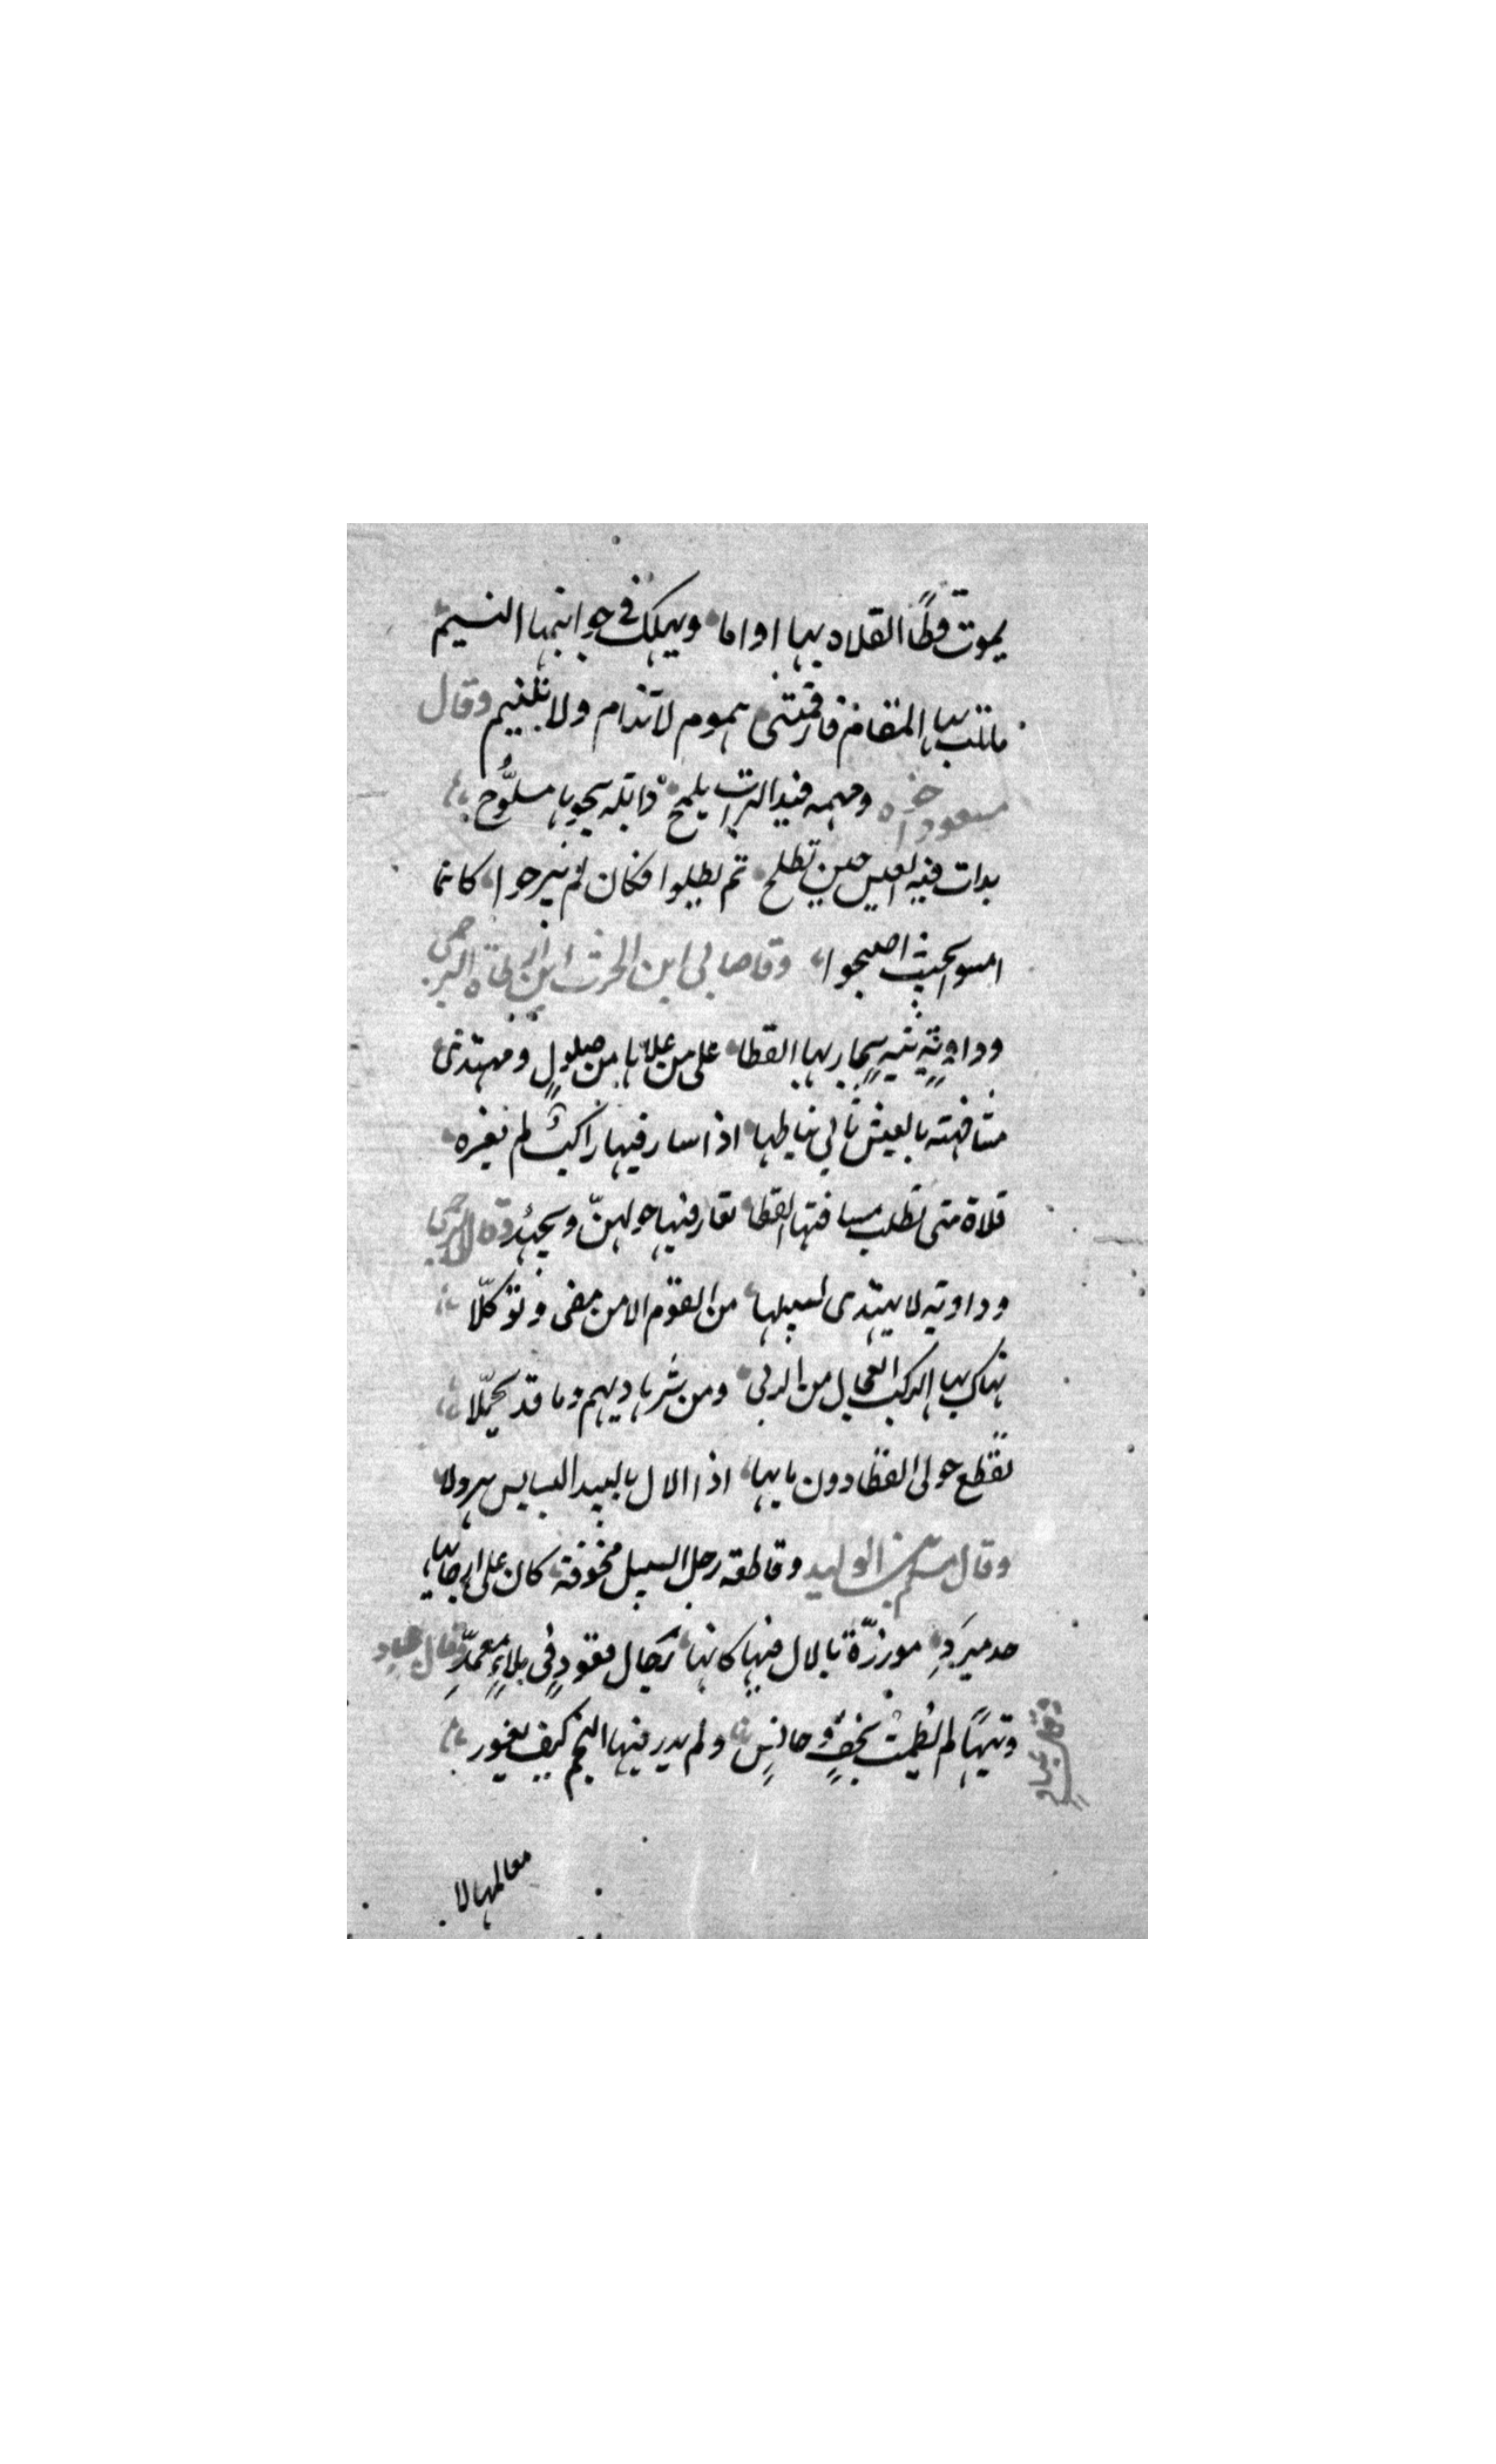 يموت قطا الفلاة بها اواما ويهلك في جوانبها النسيم
مانلت بها المقام فارقتنى هموم لا تنام ولا تنيم وقال
مسعود اخو ه ومهمه فيه السراب يلمح دابته يجوبها مسلوح
بدات فيه العيس حين تطلح ثم يطلبوا فكان لم يبرحوا كانما
امسوا بحيث اصبحوا وقا ابن الحرث ابن ارطاة البرجمى
وداوية تيه يحار بها القطا على من علاها من ضلول ومهتدى
اذا سار فيها راكب لم يغره
فلاة متى تطلب مسافتها القطا تغار فيها حولهن ويجيد وقال
وداوية لا يهتدى لسبيلها من القوم الا من مضى وتوكلا
نهاك بها الركب العجال من الردى ومن شر هاديهم وما قد تحملا
تقطع حولى القطا دون مايها اذا الال بالبيد البسابس هرولا
وقال مسلم بن الوليد وقاطعة رجل السبيل مخوفة كان على ارجايها
حد مبرد موزرة بالال فيها كانها رجال قعود فى ملاء معمد وقال عباد
وتيها لم تطمث بخف وحافر ولم يدر فيها النجم كيف يغور
وقال عباد
معالمها لا